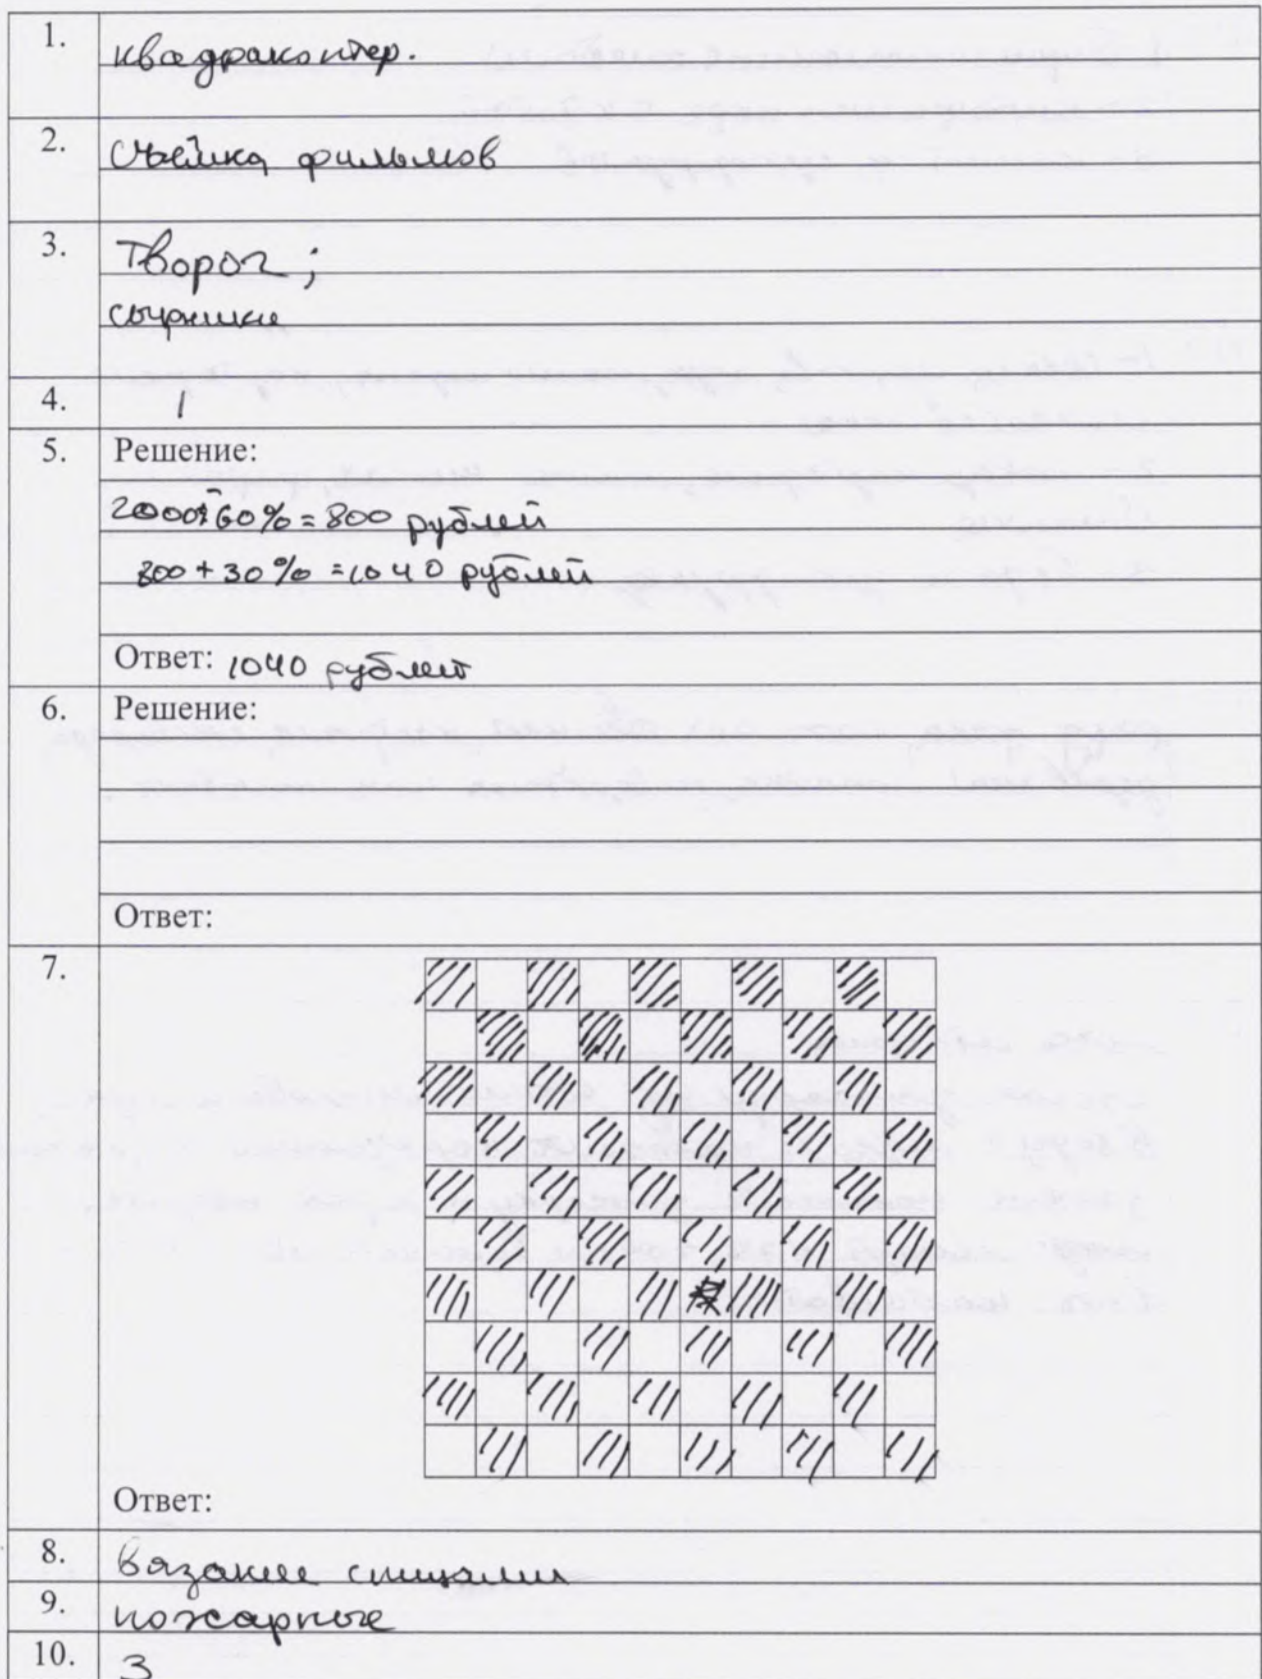 1. квадракоптер.
2. Съёмка фильмов
3. Творог;
сырники
4. 1
5. Решение:
2000-60% = 800 рублей
800 + 30% = 1040 рублей
Ответ: 1040 рублей
6. Решение:
Ответ:
7.
Ответ:
8. Вязание спицами
9. пожарные
10. 3